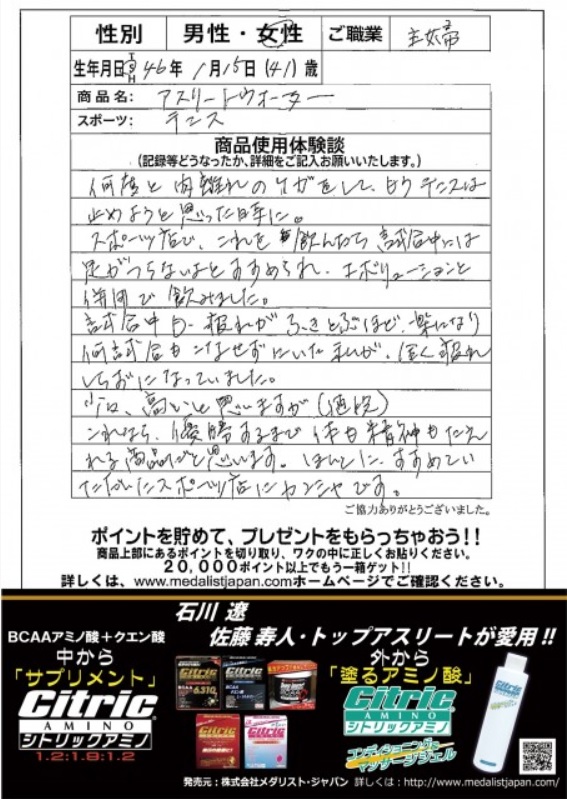 性別 男性・女性 ご職業 主婦
生年月日 T S H 46年 1月15日(41)歳
商品名: アスリートウォーター
スポーツ: テニス
商品使用体験談
(記録等どうなったか、詳細をご記入お願いいたします。)
何度と肉離れのケガをして、もうテニスは
止めようと思った時に。
スポーツ店で、これを飲んだら、試合中には
足がつらないよとすすめられ、エボリューションと
併用で飲みました。
試合中も、疲れがふきとぶほど、楽になり
何試合もこなせずにいた私が、全く疲れ
しらずになっていました。
少し、高いと思いますが(値段)
これなら、優勝するまで体も精神もたえ
れる商品だと思います。ほんとに、すすめてい
ただいたスポーツ店にカンシャです。
ご協力ありがとうございました。
ポイントを貯めて、プレゼントをもらっちゃおう!!
商品上部にあるポイントを切り取り、ワクの中に正しくお貼りください。
20,000ポイント以上でもう一箱ゲット!!
詳しくは、www.medalistjapan.comホームページでご確認ください。
石川 遼
佐藤 寿人・トップアスリートが愛用!!
BCAAアミノ酸+クエン酸
中から
「サプリメント」
Citric
AMINO
シトリックアミノ
1.2:1.9:1.2
外から
「塗るアミノ酸」
Citric
AMINO
シトリックアミノ
コンディショニング
マッサージジェル
発売元:株式会社メダリスト・ジャパン 詳しくは:http://www.medalistjapan.com/